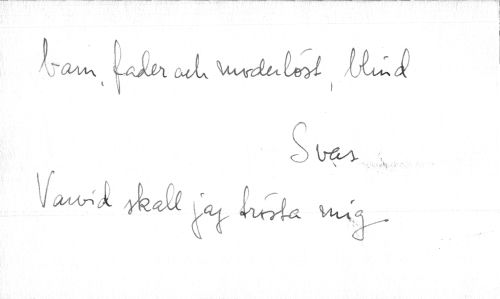 barn, fader och moderlöst, blind
Svar
Varvid skall jag trösta mig